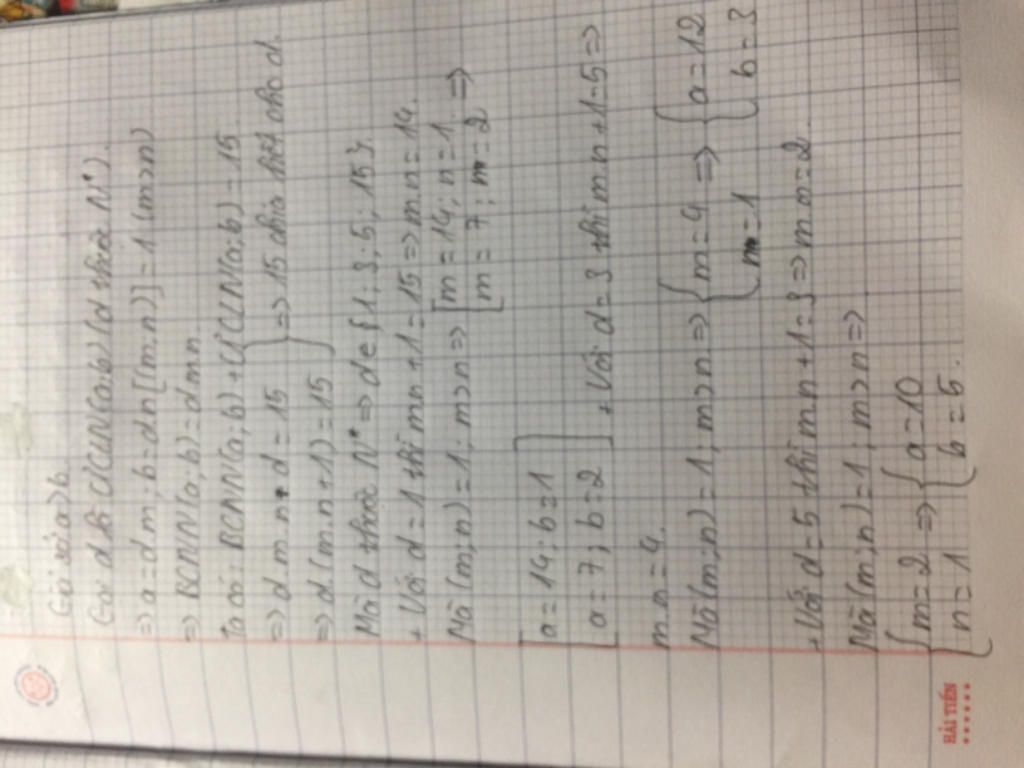 Giả sử a>b.
Gọi d là ƯCLN(a,b) (d thuộc N*).
=> a = d m ; b = d n [(m,n)] = 1 (m>n)
=> BCNN(a,b) = d m n
Ta có: BCNN(a,b) + ƯCLN(a,b) = 15
=> d m n + d = 15
=> d (m.n + 1) = 15 } => 15 chia hết cho d.
Mà d thuộc N* => d ∈ {1; 3; 5; 15}.
+ Với d = 1 thì mn + 1 = 15 => m.n = 14.
Mà (m,n) = 1; m>n => [ m = 14; n = 1
m = 7; m = 2 =>
[ a = 14; b = 1
a = 7; b = 2 ] + Với d = 3 thì m.n + 1 = 5 =>
m.n = 4.
Mà (m;n) = 1; m>n => { m = 4 => { a = 12
m = 1 b = 3
+ Với d = 5 thì mn + 1 = 3 => m n = 2.
Mà (m;n) = 1; m>n =>
{ m = 2 => { a = 10
n = 1 b = 5.
HẢI TIẾN